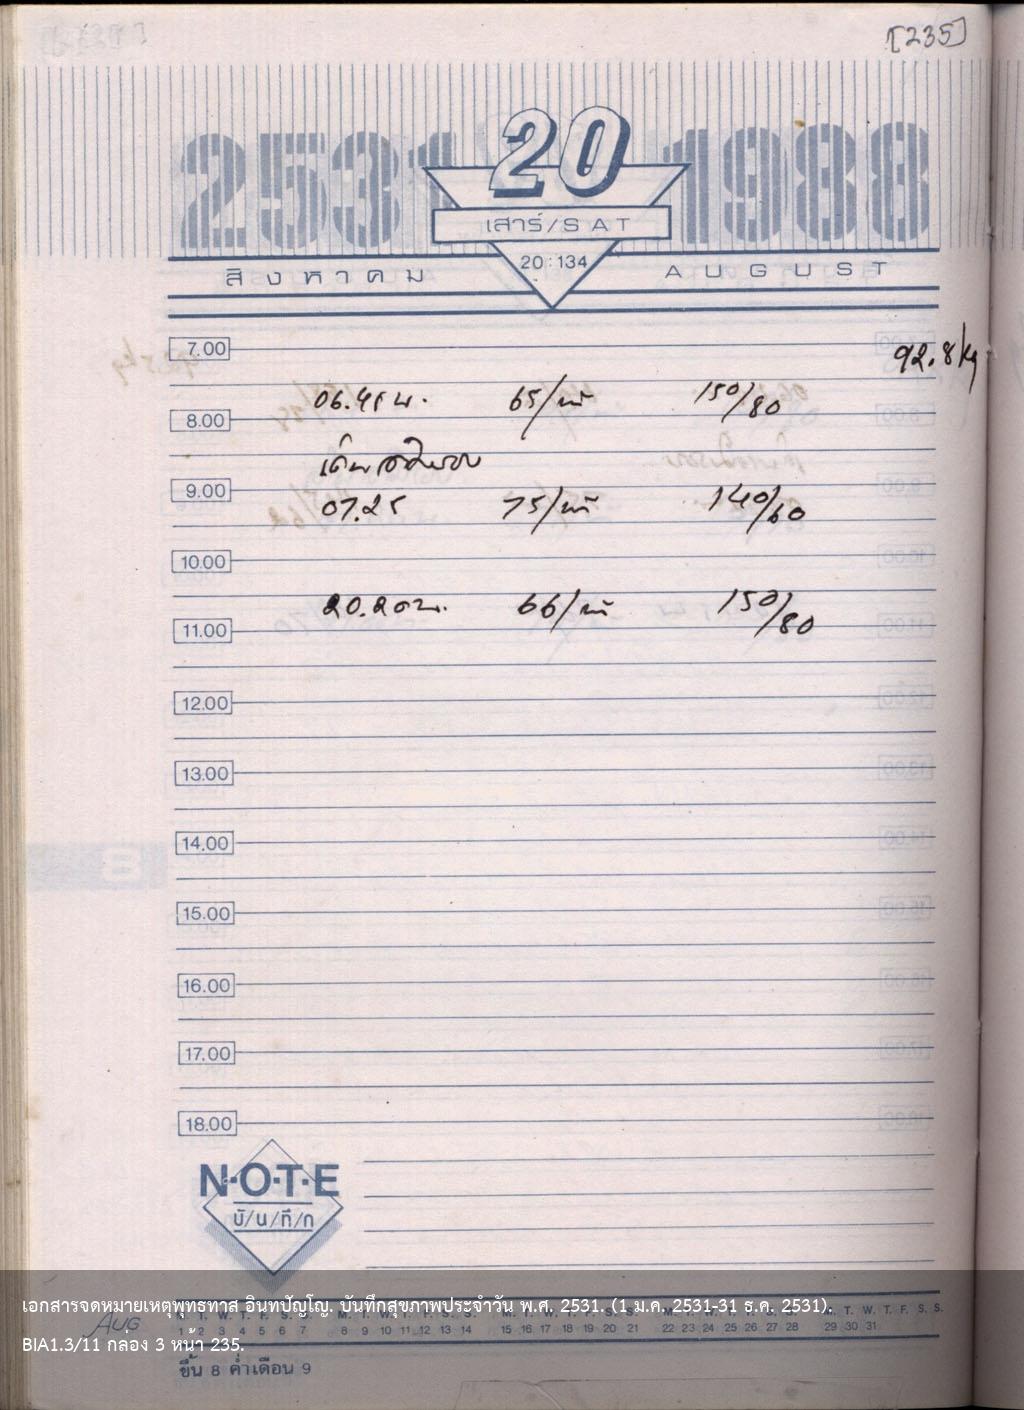 [235]
2531 20 1988
เสาร์/SAT
20:134
สิงหาคม AUGUST
7.00
92.8 kg
06.45 น. 65/นาที 150/80
8.00
9.00
07.25 75/นาที 140/60
10.00
20.20 น. 66/นาที 150/80
11.00
12.00
13.00
14.00
15.00
16.00
17.00
18.00
N·O·T·E
บั/น/ทึ/ก
เอกสารจดหมายเหตุพุทธทาส อินทปัญโญ. บันทึกสุขภาพประจำวัน พ.ศ. 2531. (1 ม.ค. 2531-31 ธ.ค. 2531).
AUG
M. T. W. T. F. S. S.
1 2 3 4 5 6 7 8 9 10 11 12 13 14 15 16 17 18 19 20 21 22 23 24 25 26 27 28 29 30 31
BIA1.3/11 กล่อง 3 หน้า 235.
ขึ้น 8 ค่ำเดือน 9